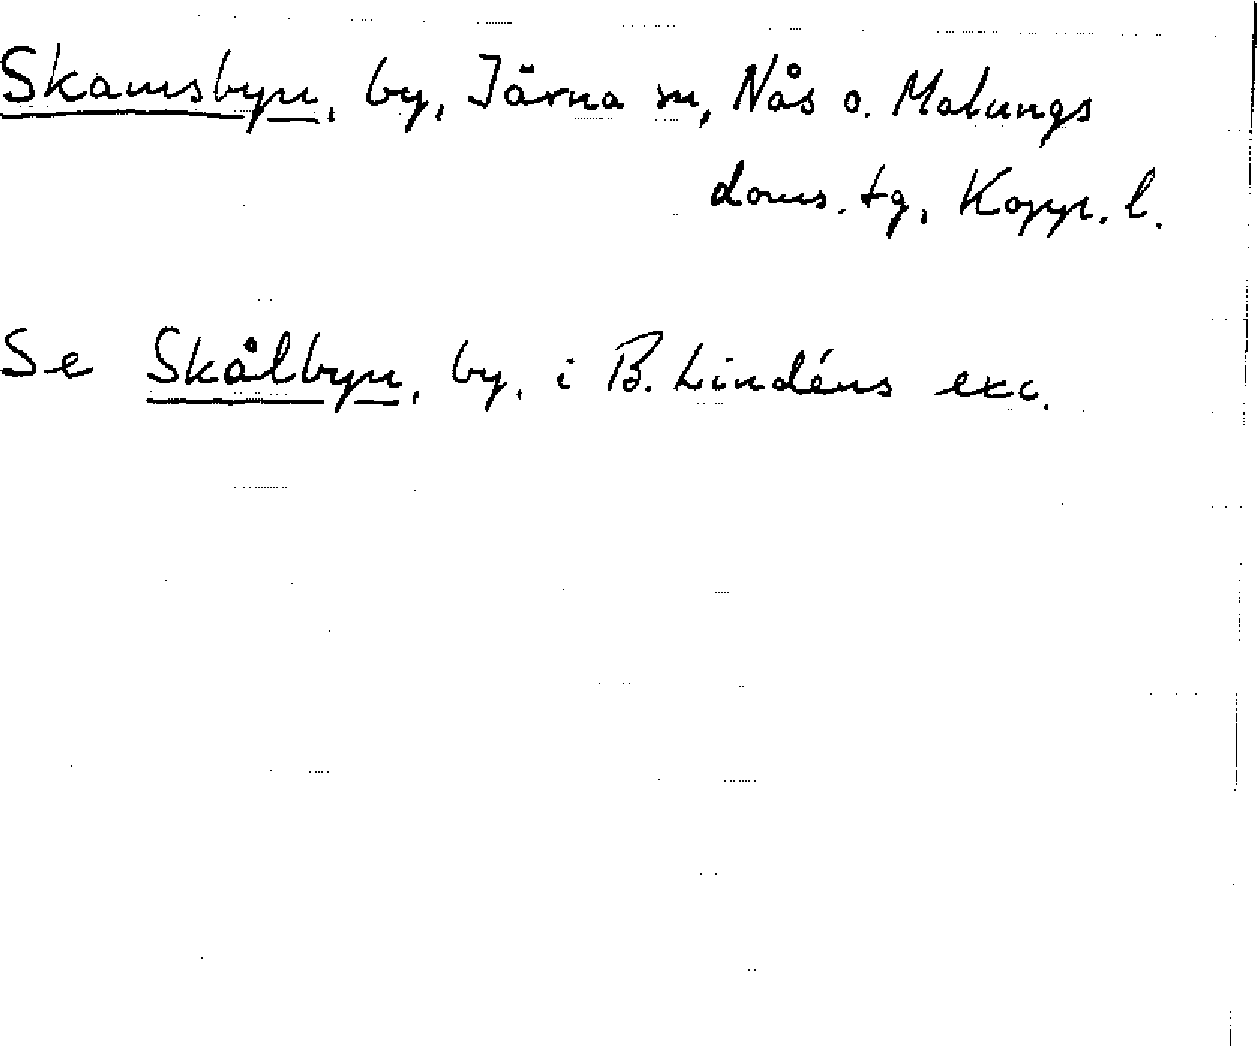 Skamsbyn, by, Järna sn, Nås o. Malungs
doms. tg, Kopp. l.
Se Skålbyn, by, i B. Lindéns exc.